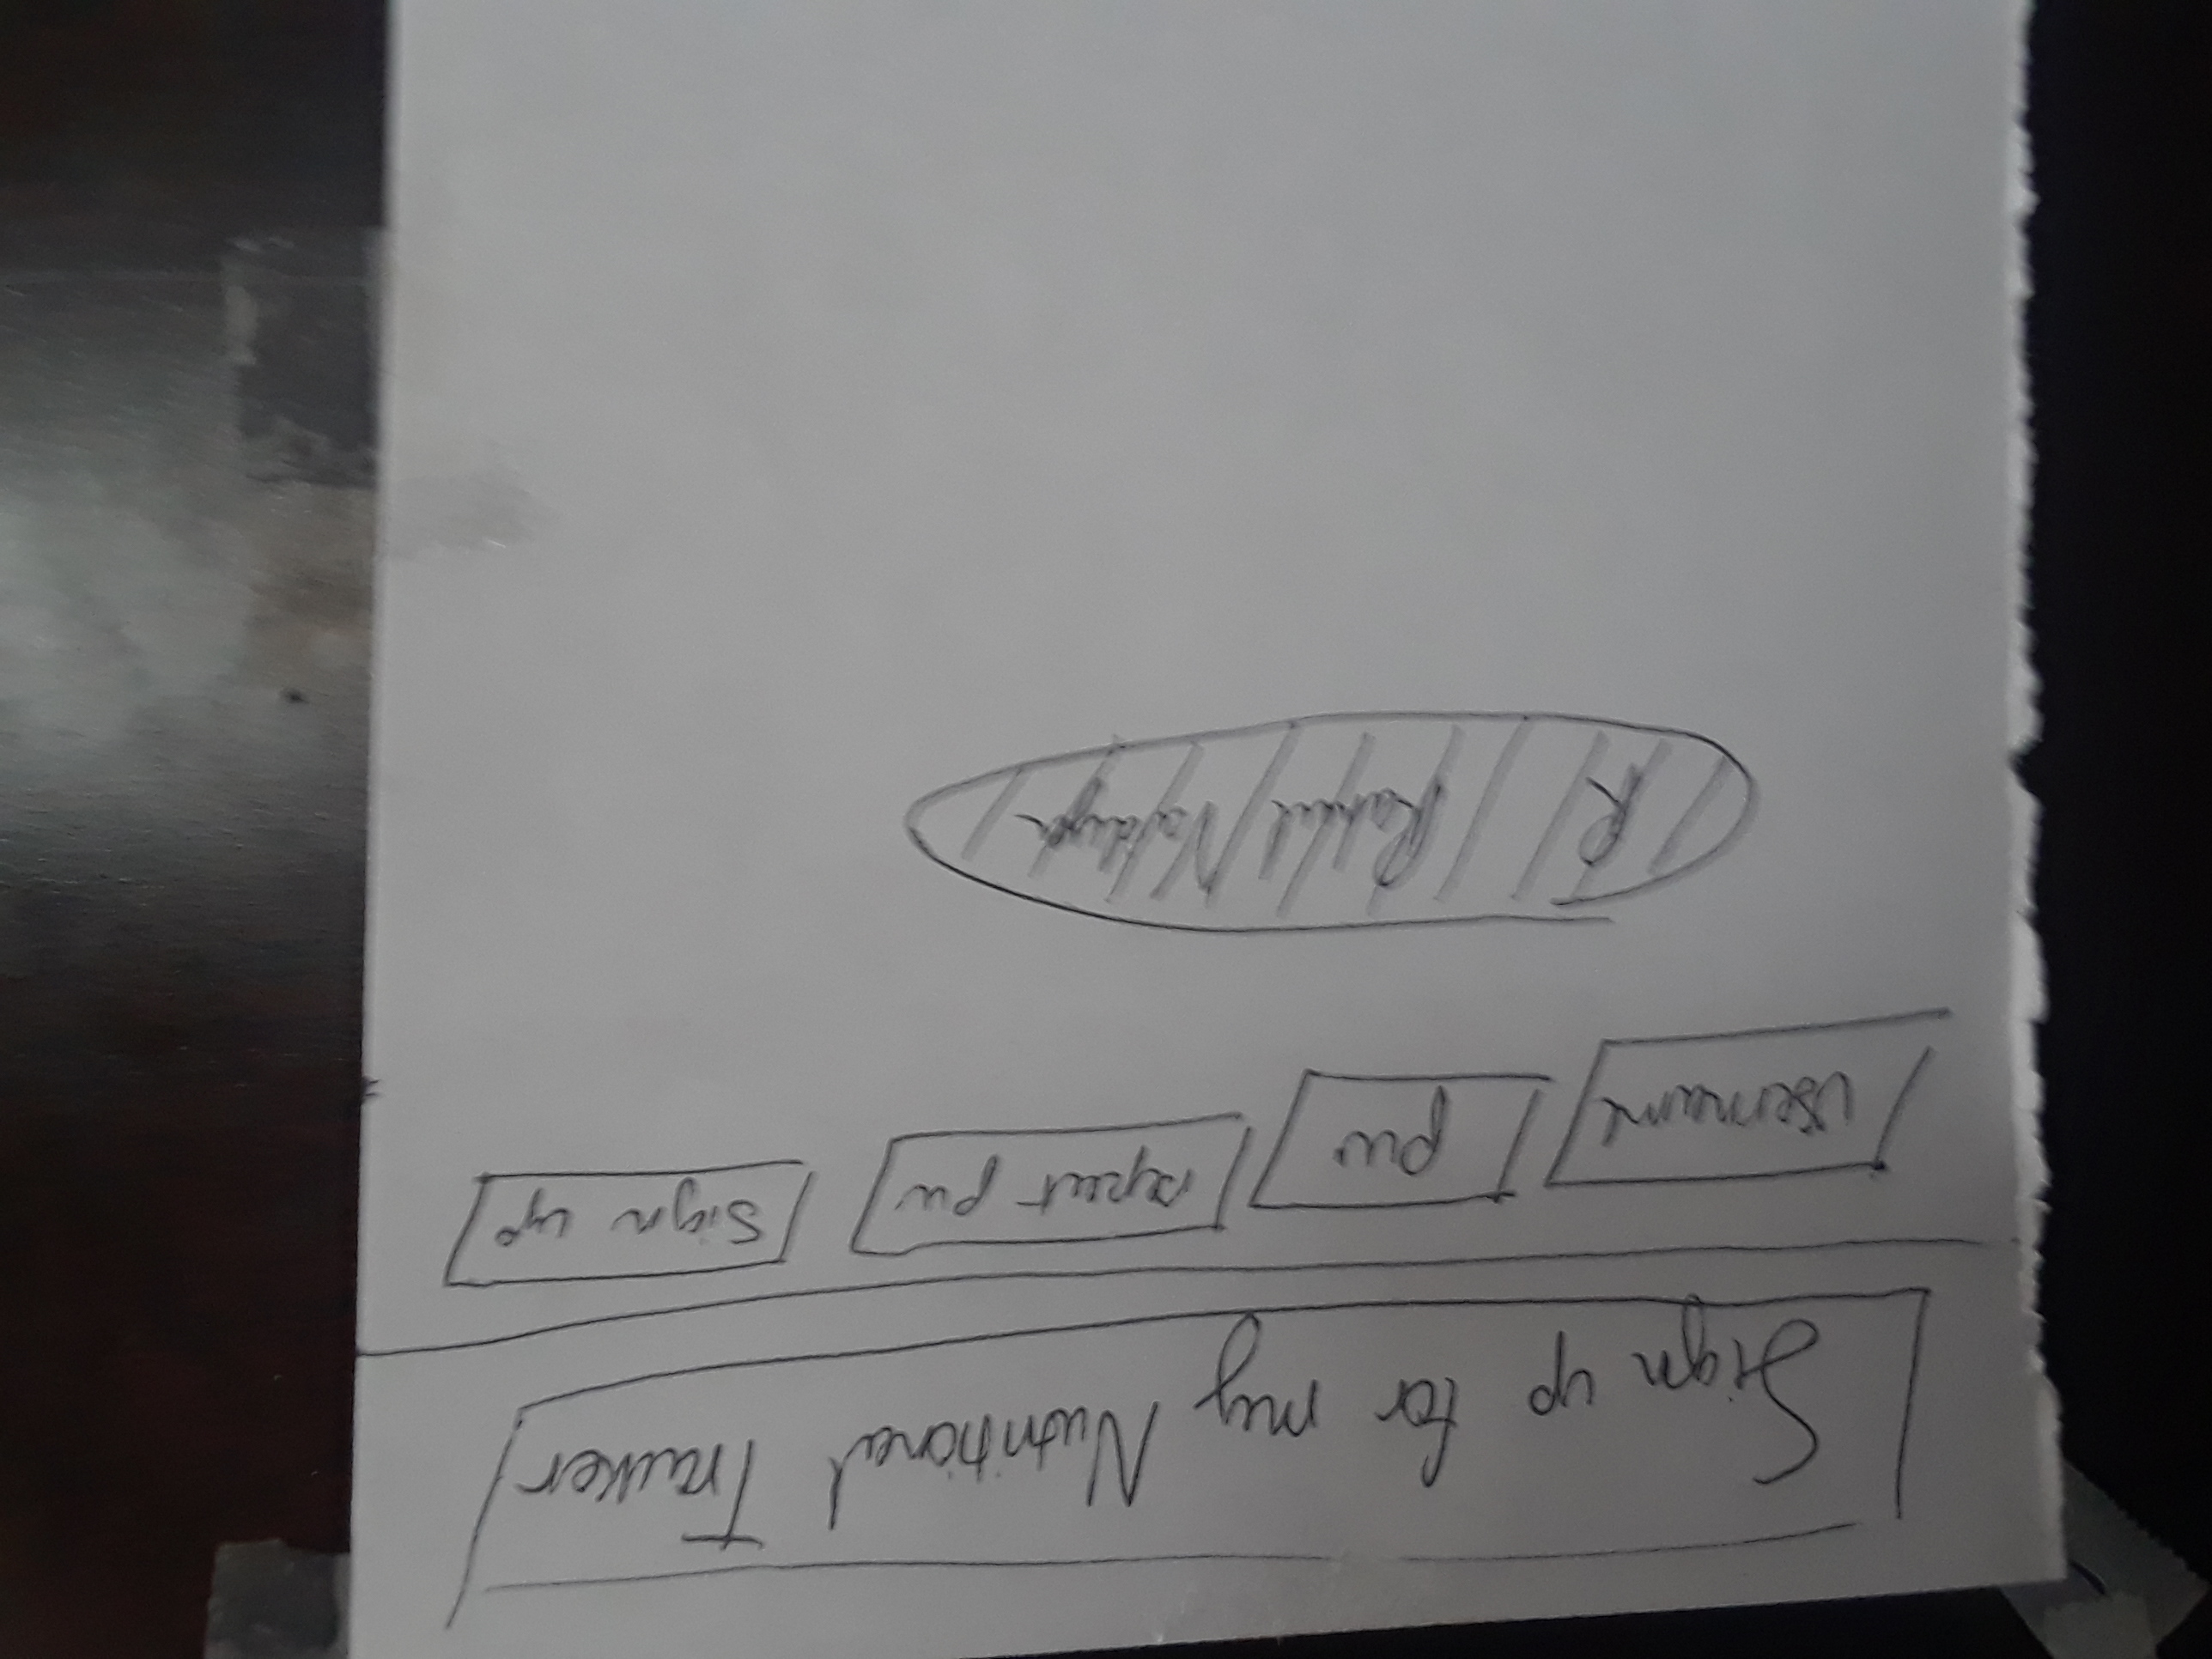 Sign up for my Nutritional Tracker
username pw repeat pw Sign up
R